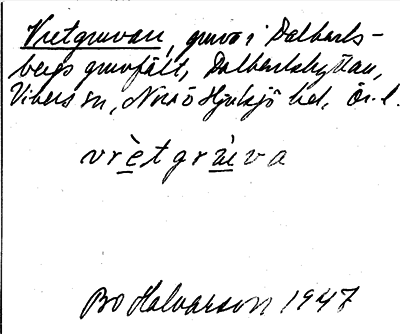 Vretgruvan, gruva i Dalkarls-
bergs gruvfält, Dalkarlshyttan,
Vikers sn, Nora o Hjulsjö hd, Ör. l.
vrètgrùva
Bo Halvarson 1947